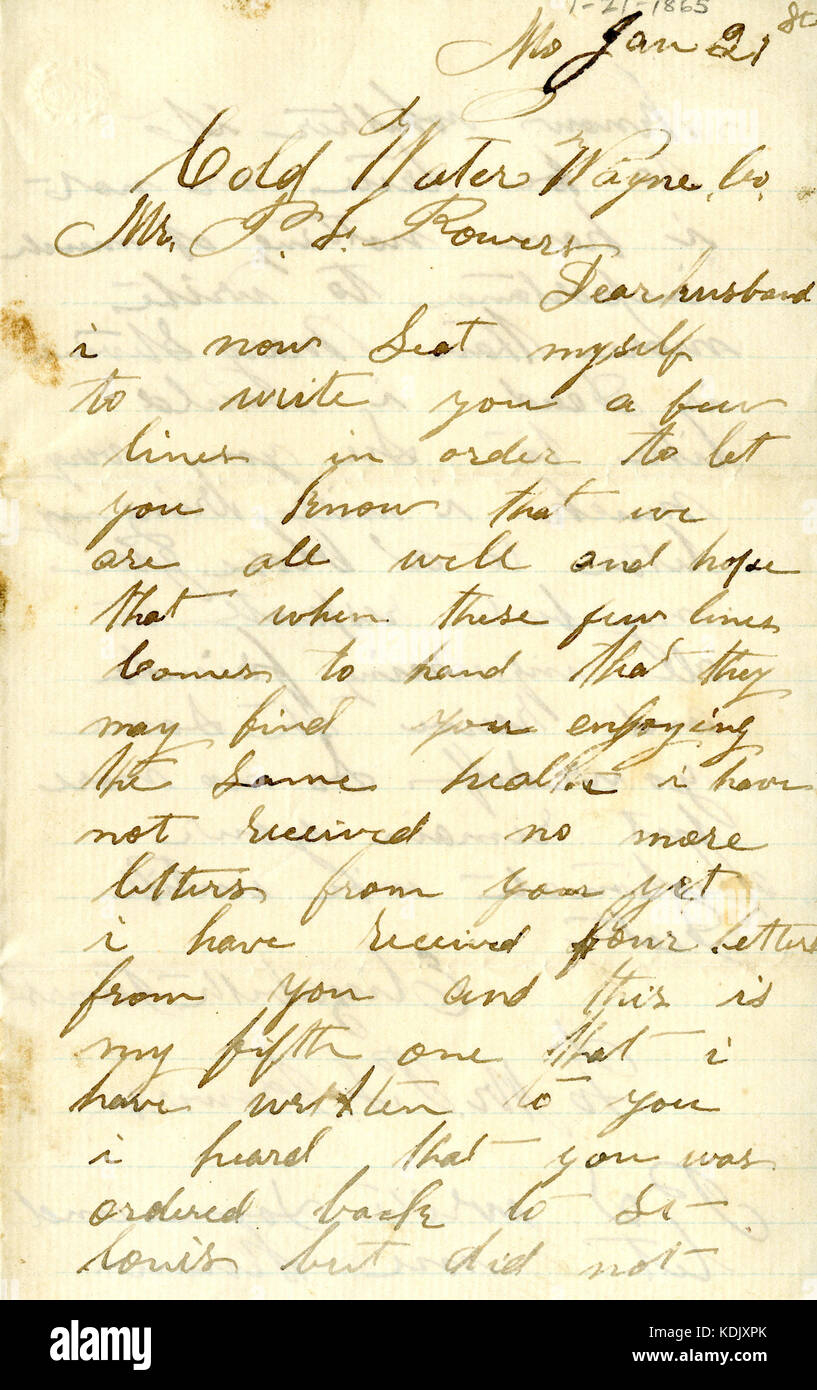 1-21-1865
Mo Jan 21st
Cold Water Wayne, Co,
Mr. P. L. Powers
Dear husband
i now Seat myself
to write you a few
lines in order to let
you know that we
are all well and hope
that when these few lines
Comes to hand that they
may find you enjoying
the Same health i have
not received no more
letters from you yet
i have received four letters
from you and this is
my fifth one that i
have written to you
i heard that you was
ordered back to St
louis but did not
alamy
Image ID: KDJXPK
www.alamy.com